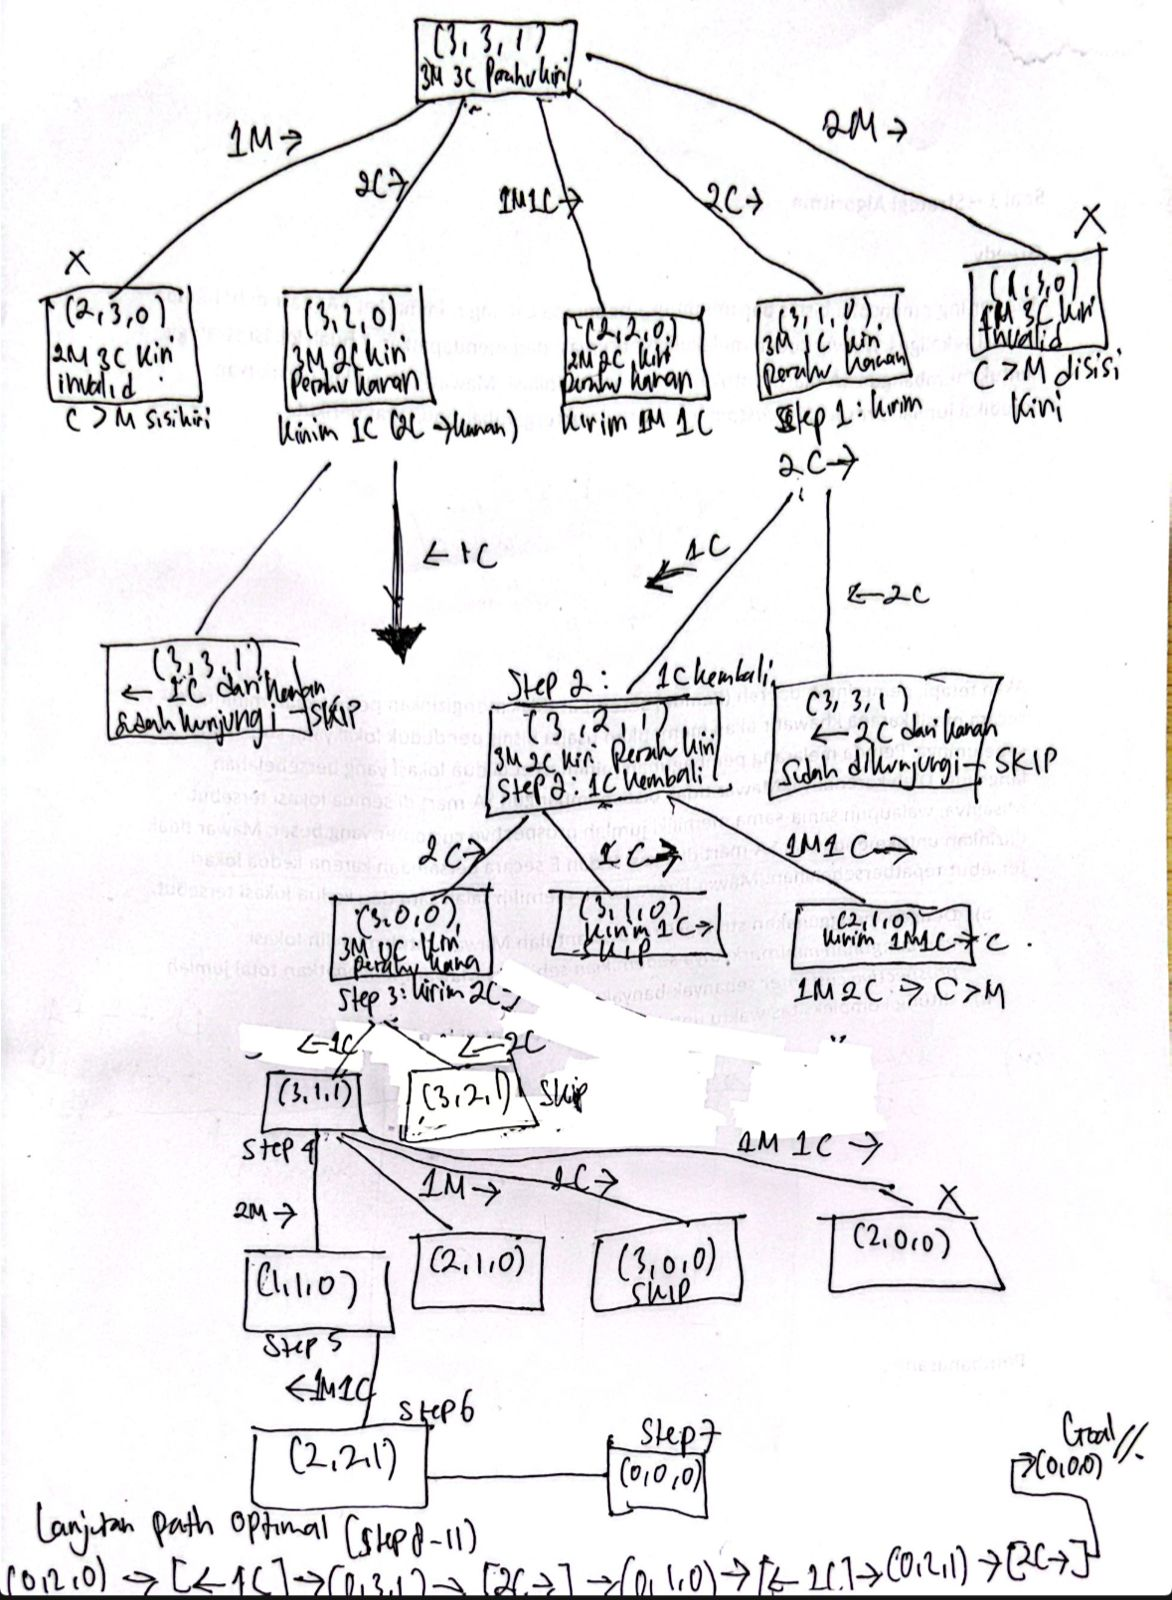 (3, 3, 1)
3M 3C Perahu kiri
1M →
2C →
1M1C →
2C →
2M →
X
(2, 3, 0)
2M 3C kiri
invalid
C > M sisi kiri
(3, 1, 0)
3M 2C kiri
perahu kanan
Kirim 1C (2C → kanan)
(2, 2, 0)
2M 2C kiri
Perahu kanan
Kirim 1M 1C
(3, 1, 0)
3M 1C kiri
Perahu kanan
Step 1 : kirim
2C →
X
(1, 3, 0)
1M 3C kiri
invalid
C > M disisi
kiri
← 1C
← 1C
← 2C
(3, 3, 1)
← 1C dari kanan
sudah kunjungi → SKIP
Step 2 : 1C kembali
(3, 2, 1)
3M 2C kiri Perahu kiri
Step 2 : 1C kembali
(3, 3, 1)
← 2C dari kanan
Sudah dikunjungi → SKIP
2C →
1C →
1M1C →
(3, 0, 0)
3M 0C kiri
perahu kana
Step 3 : kirim 2C →
(3, 1, 0)
Kirim 1C →
SKIP
(2, 1, 0)
kirim 1M1C → C
1M 2C → C > M
← 1C
← 2C
(3,1,1)
Step 4
(3,2,1) Skip
2M →
1M →
1C →
1M 1C →
X
(1,1,0)
Step 5
(2,1,0)
(3,0,0)
SKIP
(2,0,0)
← 1M1C
Step 6
(2,2,1)
Step 7
(0,0,0)
Goal //
→ (0,0,0)
Lanjutan path optimal (step 8-11)
(0,2,0) → [← 1C] → (0,3,1) → [2C →] → (0,1,0) → [← 1C] → (0,2,1) → [2C →]